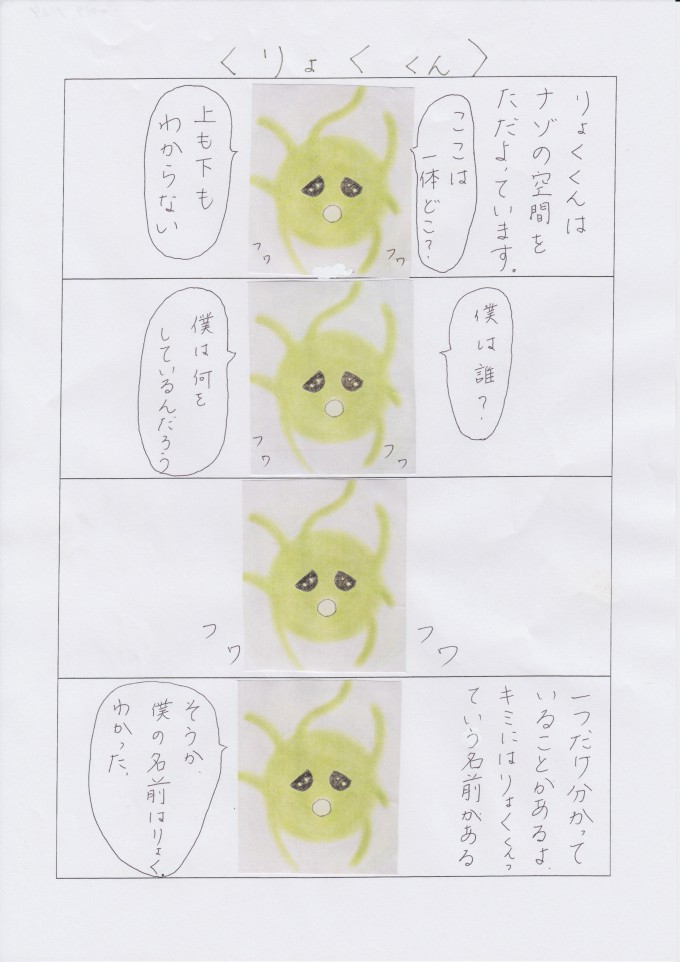 〈りょくくん〉
りょくくんは
ナゾの空間を
ただよっています。
ここは
一体どこ?
上も下も
わからない
フワ
フワ
僕は誰?
僕は何を
しているんだろう
フワ
フワ
フワ
フワ
一つだけ分かって
いることがあるよ、
キミにはりょくくんっ
ていう名前がある
そうか、
僕の名前はりょく、
わかった、